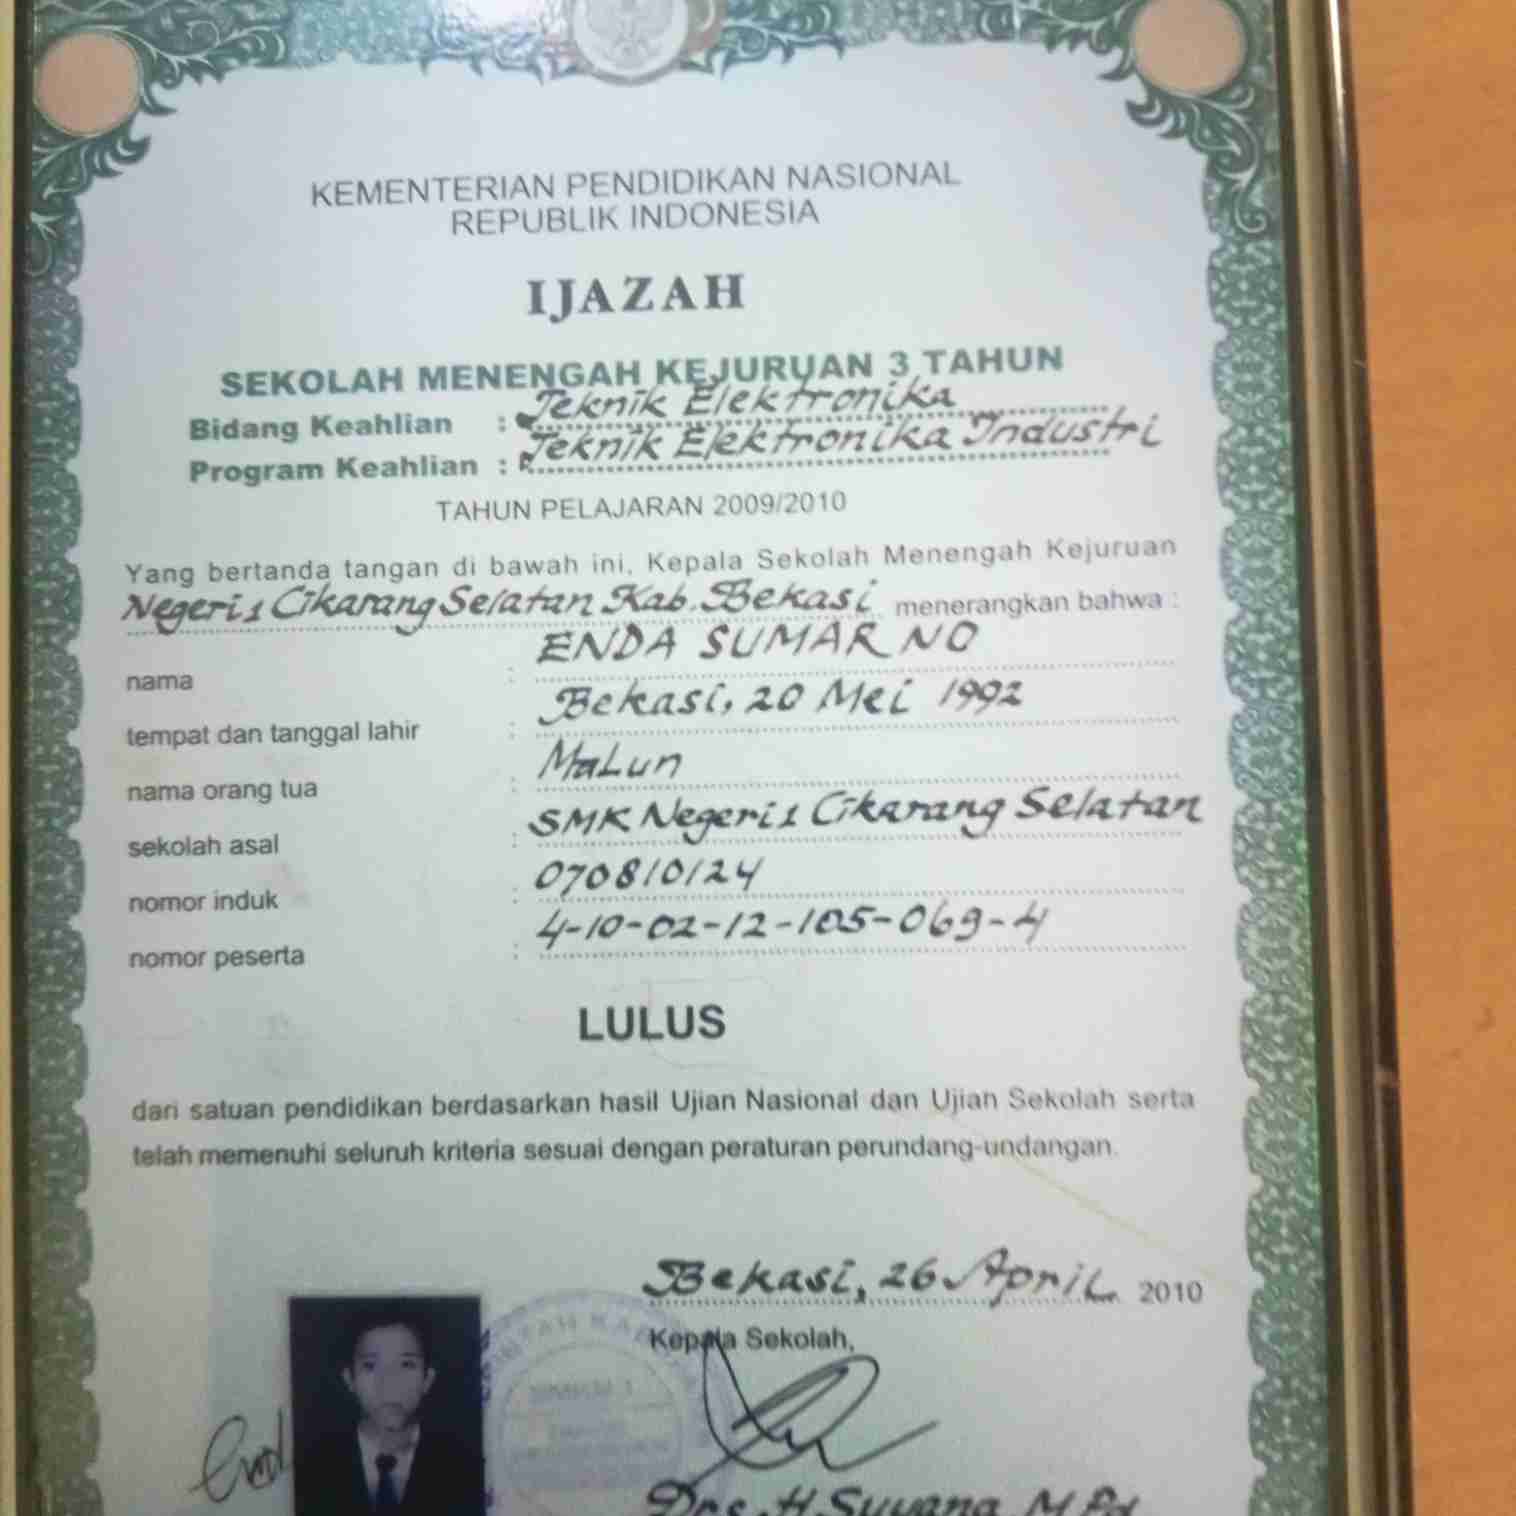 KEMENTERIAN PENDIDIKAN NASIONAL
REPUBLIK INDONESIA
IJAZAH
SEKOLAH MENENGAH KEJURUAN 3 TAHUN
Bidang Keahlian : Teknik Elektronika
Program Keahlian : Teknik Elektronika Industri
TAHUN PELAJARAN 2009/2010
Yang bertanda tangan di bawah ini, Kepala Sekolah Menengah Kejuruan
Negeri 1 Cikarang Selatan Kab. Bekasi menerangkan bahwa :
nama : ENDA SUMARNO
tempat dan tanggal lahir : Bekasi, 20 Mei 1992
nama orang tua : Malun
sekolah asal : SMK Negeri 1 Cikarang Selatan
nomor induk : 070810124
nomor peserta : 4-10-02-12-105-069-4
LULUS
dari satuan pendidikan berdasarkan hasil Ujian Nasional dan Ujian Sekolah serta
telah memenuhi seluruh kriteria sesuai dengan peraturan perundang-undangan.
Bekasi, 26 April 2010
Kepala Sekolah,
Drs. H. Suyana, M.Pd